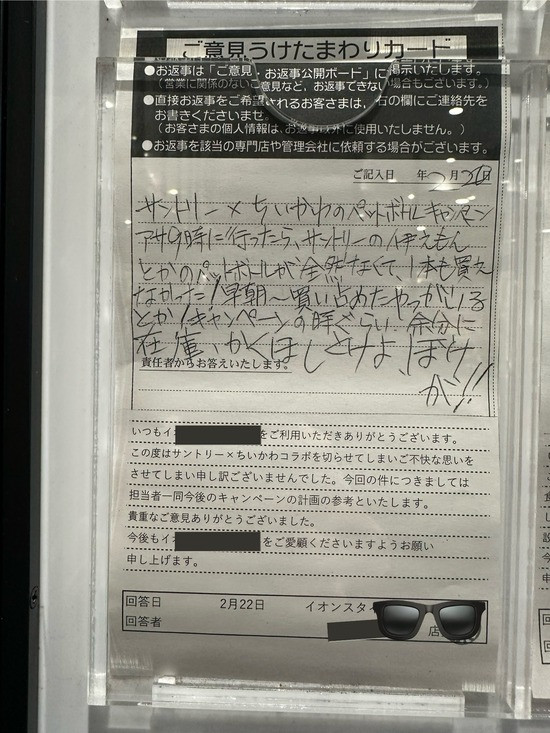 ご意見うけたまわりカード
●お返事は「ご意見・お返事公開ボード」に掲示いたします。
(営業に関係のないご意見など、お返事できない場合もございます。)
●直接お返事をご希望されるお客さまは、右の欄にご連絡先を
お書きくださいませ。
(お客さまの個人情報は、お返事以外に使用いたしません。)
●お返事を該当の専門店や管理会社に依頼する場合がございます。
ご記入日 年2月 日
サントリー×ちいかわのペットボトルキャンペーン
アサ9時に行ったら、サントリーの伊えもん
とかのペットボトルが全然なくて、1本も買え
なかった!早朝〜買い占めたやつがいる
とか!キャンペーンの時ぐらい、余分に
在庫、かくほしとけよ、ぼけ
が!!
責任者からお答えいたします。
いつもイ をご利用いただきありがとうございます。
この度はサントリー×ちいかわコラボを切らせてしまいご不快な思いを
させてしまい申し訳ございませんでした。今回の件につきましては
担当者一同今後のキャンペーンの計画の参考といたします。
貴重なご意見ありがとうございました。
今後もイ をご愛顧くださいますようお願い
申し上げます。
回答日 2月22日 イオンスタイ
回答者 店